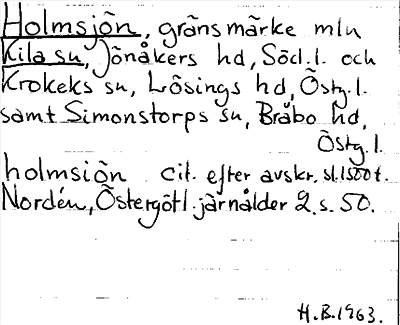 Holmsjön, gränsmärke mln
Kila sn, Jönåkers hd, Södl. l. och
Krokeks sn, Lösings hd, Östg. l.
samt Simonstorps sn, Bråbo hd,
Östg. l.
holmsiön cit. efter avskr. sl. 1500t.
Nordén, Östergötl. järnålder 2. s. 50.
H.B. 1963.